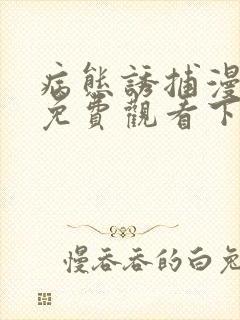 病態誘捕漫
免費觀看下
慢吞吞的白兔